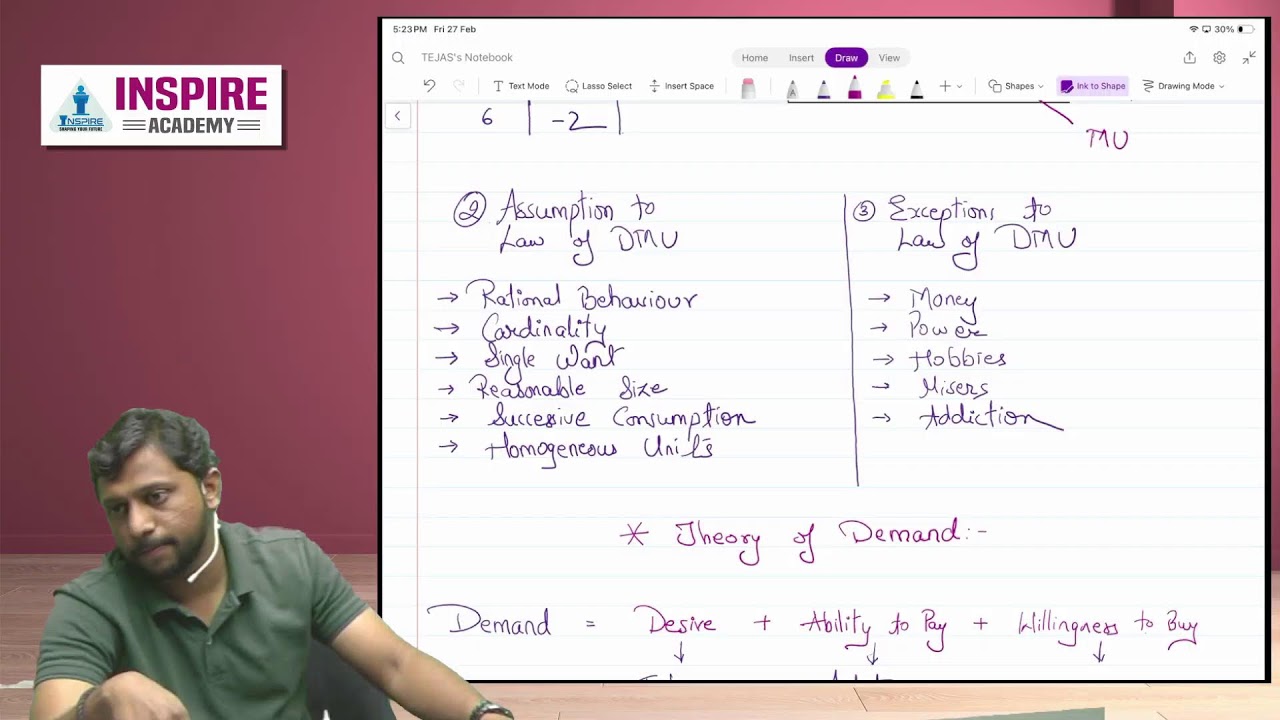 INSPIRE
ACADEMY
INSPIRE
SHAPING YOUR FUTURE
5:23 PM Fri 27 Feb
30%
TEJAS's Notebook
Home Insert Draw View
Text Mode Lasso Select Insert Space Shapes Ink to Shape Drawing Mode
6 -2
TMU
② Assumption to
Law of DMU
→ Rational Behaviour
→ Cardinality
→ Single Want
→ Reasonable Size
→ Successive Consumption
→ Homogeneous Units
③ Exceptions to
Law of DMU
→ Money
→ Power
→ Hobbies
→ Misers
→ Addiction
* Theory of Demand:-
Demand = Desire + Ability to Pay + Willingness to Buy